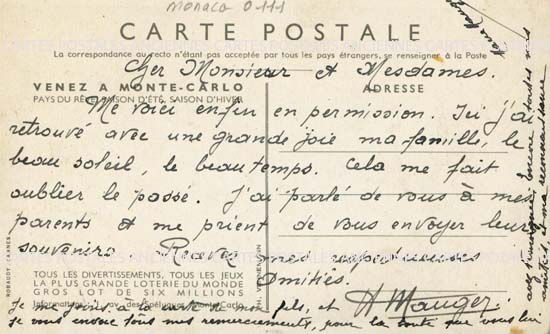 Monaco 0111
CARTE POSTALE
La correspondance au recto n'étant pas acceptée par tous les pays étrangers, se renseigner à la Poste
Cher Monsieur et Mesdames.
VENEZ A MONTE-CARLO
ADRESSE
PAYS DU RÊVE, SAISON D'ÉTÉ, SAISON D'HIVER
Me voici enfin en permission. Ici j'ai
retrouvé avec une grande joie ma famille, le
beau soleil, le beau temps. Cela me fait
oublier le passé. J'ai parlé de vous à mes
parents et me prient de vous envoyer leurs
souvenirs Recevez mes respectueuses
TOUS LES DIVERTISSEMENTS, TOUS LES JEUX
Amitiés.
LA PLUS GRANDE LOTERIE DU MONDE
GROS LOT DE SIX MILLIONS
H Mauger
Informations: 1, av. des Spélugues, Monte-Carlo
Je me joins à la carte de mon fils, et
je vous envoie tous mes remerciements, pour la
que vous lui
avez
toutes mes
amitiés et ma reconnaissance
ROBAUDY CANNES